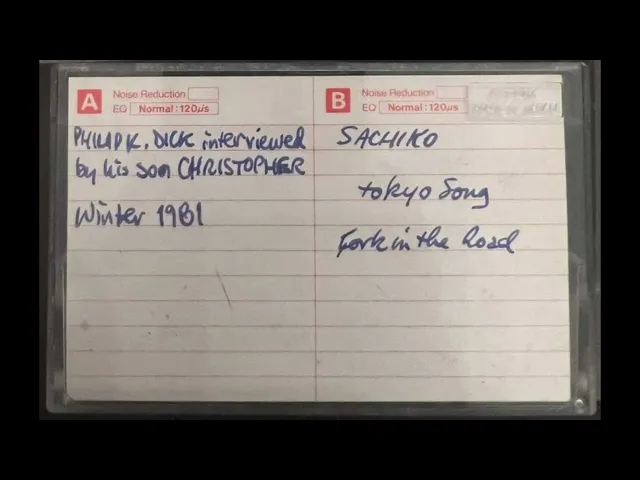 A Noise Reduction
EQ Normal:120μs
PHILIP K. DICK interviewed
by his son CHRISTOPHER
Winter 1981
B Noise Reduction
EQ Normal:120μs
SACHIKO
tokyo Song
Fork in the Road